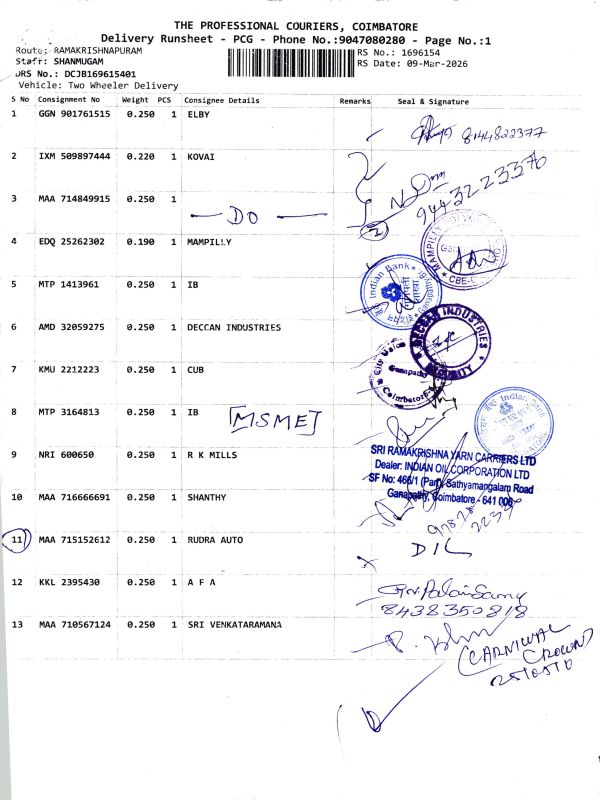 THE PROFESSIONAL COURIERS, COIMBATORE
Delivery Runsheet - PCG - Phone No.:9047080280 - Page No.:1
Route: RAMAKRISHNAPURAM
RS No.: 1696154
Staff: SHANMUGAM
RS Date: 09-Mar-2026
DRS No.: DCJB169615401
Vehicle: Two Wheeler Delivery
S No Consignment No Weight PCS Consignee Details Remarks Seal & Signature
1 GGN 901761515 0.250 1 ELBY
8144822377
2 IXM 509897444 0.220 1 KOVAI
9443223370
3 MAA 714849915 0.250 1
— DO —
2
4 EDQ 25262302 0.190 1 MAMPILLY
MAMPILLY
CBE-
5 MTP 1413961 0.250 1 IB
Indian Bank
6 AMD 32059275 0.250 1 DECCAN INDUSTRIES
DECCAN INDUSTRIES
SECURITY
7 KMU 2212223 0.250 1 CUB
City Union
Ganapathy
Coimbatore
8 MTP 3164813 0.250 1 IB [MSME]
Indian Bank
9 NRI 600650 0.250 1 R K MILLS
SRI RAMAKRISHNA YARN CARRIERS LTD
Dealer: INDIAN OIL CORPORATION LTD
SF No: 466/1 (Part) Sathyamangalam Road
Ganapathy, Coimbatore - 641 006
10 MAA 716666691 0.250 1 SHANTHY
11 MAA 715152612 0.250 1 RUDRA AUTO
D/L
12 KKL 2395430 0.250 1 A F A
8438350818
13 MAA 710567124 0.250 1 SRI VENKATARAMANA
CARNIWAL
CROWN